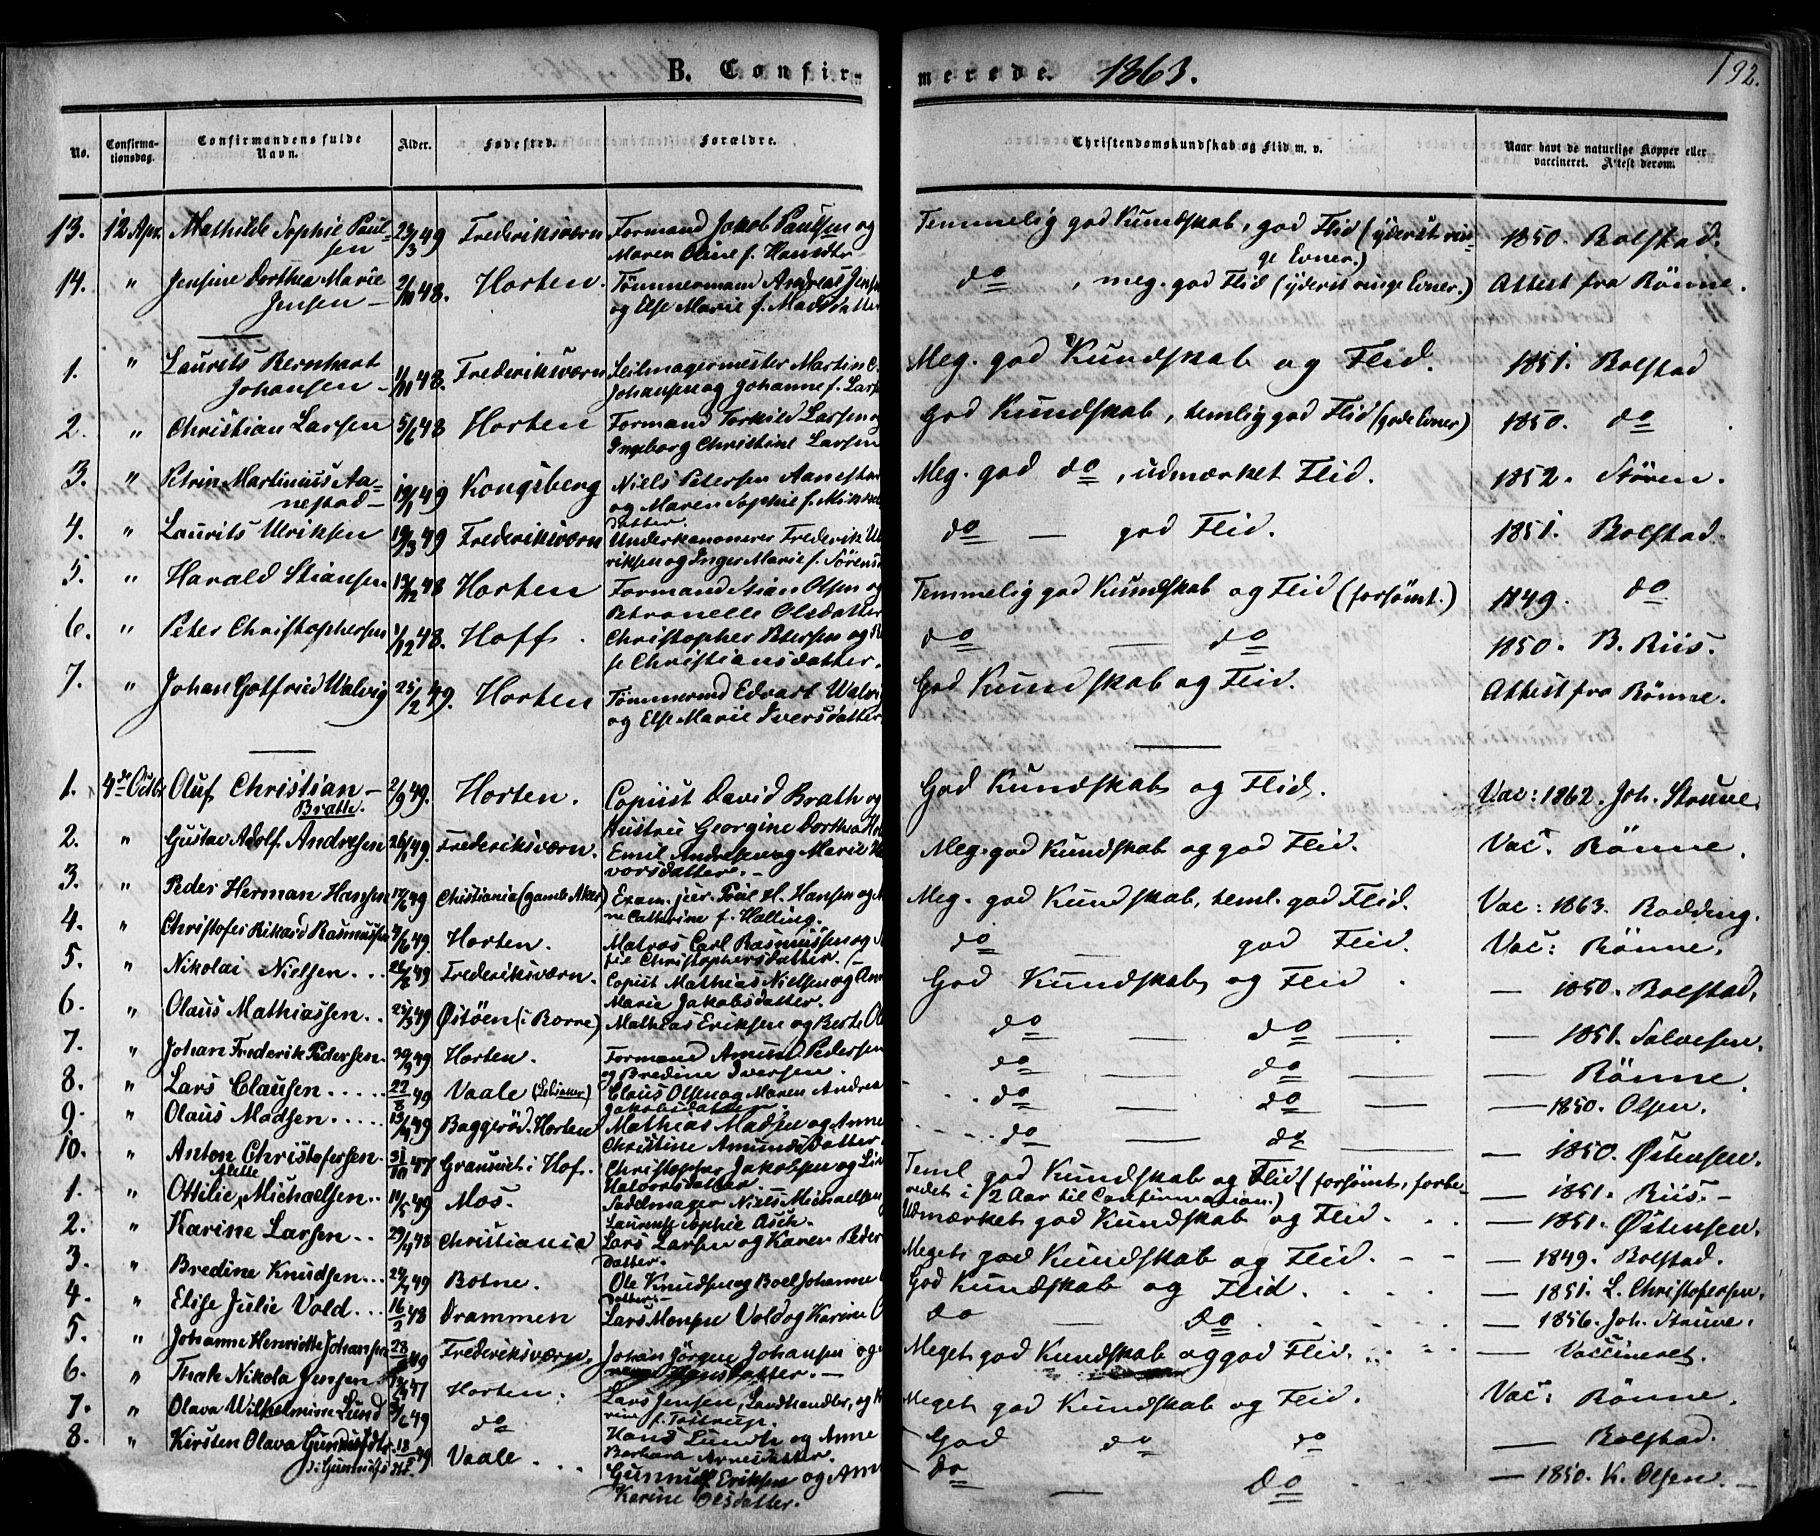 B. Confir-
merede. 1863.
192.
No.
Confirma-
tionsdag.
Confirmandens fulde
Navn.
Alder.
Fødested.
Forældre.
Christendomskundskab og Flid m. v.
Naar havt de naturlige Kopper eller
vaccineret. Attest derom.
13. 12 Apr. Mathilde Sophie Paul- 23/3 49 Frederiksværn Formand Jakob Paulsen og Temmelig god Kundskab, god Flid (yderst rin- 1850. Bolstad.
sen Maren Oline f. Hansdtr ge Evner.)
14. " Jensine Dorthea Marie 2/10 48. Horten. Tømmermand Andreas Jens do, meg. god Flid (yderst ringe Evner.) Attest fra Rønne.
Jensen og Else Marie f. Madsdatter
1. " Laurits Bernhart 1/11 48. Frederiksværn Seilmagermester Martin C. Meg. god Kundskab og Flid. 1851. Bolstad
Johansen Johansen og Johanne f. Lars
2. " Christian Larsen 5/6 48 Horten Formand Torkild Larsen og God Kundskab, temlig god Flid (gode Evner) 1850. do
Ingeborg Christine Larsen
3. " Petrin Martinius Aa- 19/1 49 Kongsberg Niels Petersen Aanestad Meg. god do, udmærket Flid. 1852. Støren.
nestad og Maren Sophie f. Mikkels
datter.
4. " Laurits Ulriksen 19/3 49 Frederiksværn Underkanonerer Frederik Ul do — god Flid. 1851. Bolstad.
riksen og Inger Marie f. Sørens
5. " Harald Stiansen 13/12 48 Horten Formand Stian Olsen og Temmelig god Kundskab og Flid (forsømt.) 1849. do
Petronelle Olsdatter
6. " Peter Christophersen 1/12 48. Hoff. Christopher Petersen og do — do 1850. B. Riis.
Christiansdatter.
7. " Johan Gotfried Walvig 25/2 49. Horten Tømmermd Edvart Walvi God Kundskab og Flid. Attest fra Rønne.
og Else Marie Iversdatter
1. 4de Octbr Oluf Christian 2/9 49. Horten. Copiist David Brath og God Kundskab og Flid. Vac: 1862. Joh. Struve.
Brathe. Hustru Georgine Dorthea
2. " Gustav Adolf Andresen 26/1 49. Frederiksværn. Emil Andresen og Marie Meg. god Kundskab og god Flid. Vac. Rønne.
vorsdatter.
3. " Peder Herman Hansen 49 Christiania (gamle Aker) Exam. jur. H. Hansen og Meg. god Kundskab, teml. god Flid. Vac: 1863. Rodding.
ne Cathrine f. Halling.
4. " Christofer Rikard Rasmussen 49. Horten. Matros Carl Rasmussen og do god Flid. Vac: Rønne.
Christophersdatter.
5. " Nikolai Nielsen 49 Frederiksværn. Copist Mathias Nielsen og Ann God Kundskab og Flid. — 1850. Bolstad.
Marie Jakobsdatter.
6. " Olaus Mathiassen 49 Østøen (i Borre) Mathias Eriksen og Berte Ol do — do — 1851. Salvesen.
7. " Johan Frederik Pedersen 49 Horten. Formand Amund Pedersen do — do — Rønne.
og Bredine Iversen.
8. " Lars Clausen 22/8 49 Vaale Claus Olsen og Maren Andrea do — do — 1850. Olsen.
Jakobsdatter
9. " Olaus Madsen 49 Baggerød. Horten Mathias Madsen og Anne do — do — 1850. Østensen.
Christine Amundsdatter
10. " Anton Christofersen 31/10 47 i Hof. Christopher Jakobsen og Teml. god Kundskab og Flid (forsømt, forbe- — 1851. Riis.
Halvorsdatter. redet i 1/2 Aar til Confirmation.)
1. " Ottilie Michaelsen 49 Mos. Sadelmager Niels Michaelsen Udmærket god Kundskab og Flid. — 1851. Østensen.
Sophie Asch.
2. " Karine Larsen 48 Christiania Lars Larsen og Karen Peder Meget god Kundskab og Flid. — 1849. Bolstad.
datter.
3. " Bredine Knudsen 49 Botne. Ole Knudsen og Boel Johanne God Kundskab og Flid. — 1851. L. Christofersen.
datter.
4. " Elise Julie Vold 16/2 48 Drammen Lars Monsen Vold og Karine O do — do — 1856. Joh. Struve.
5. " Johanne Henriette Johansen 49 Frederiksværn. Johan Jörgen Johansen og Meget god Kundskab og god Flid. — Vaccineret.
Hansdatter.
6. " Nikola Jensen 47 Horten. Lars Jensen, Landhandler, og Meget god Kundskab og Flid. Vac: Rønne.
rine f. Tostrup.
7. " Olava Wilhelmine Lund 49 do Hans Lund og Anne God do do — Bolstad.
Barbara Arnesdatter.
8. " Kirsten Olava 49 Vaale Gunnuf Eriksen og Ann do — do — 1850. K. Olsen.
Karine Olsdatter.